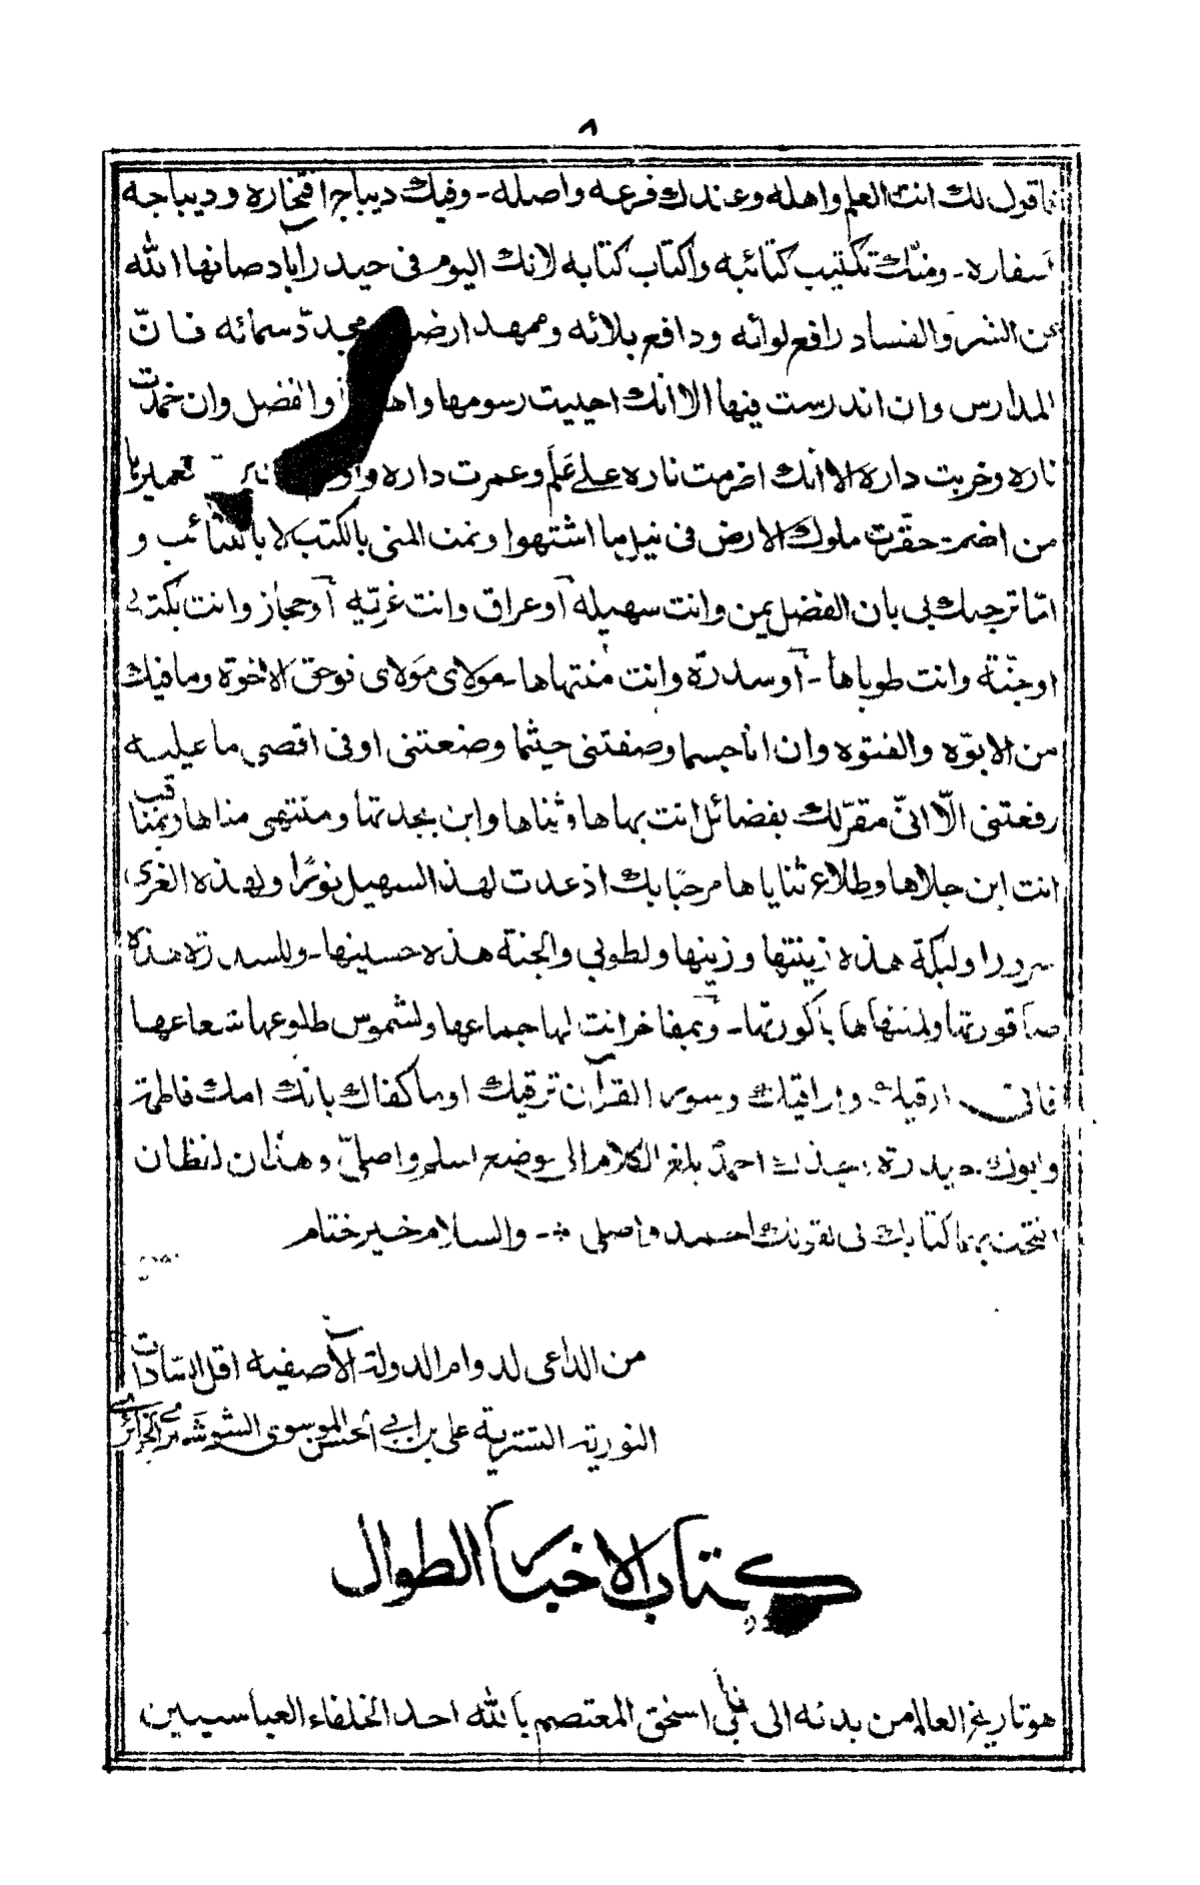 ٨
فاقول لك انت العلم واهله وعندك فرعه واصله ـ وفيك ديباج افتخاره وديباجه
اسفاره ـ ومنك تكتيب كتائبه واكتاب كتابه لانك اليوم فى حيدرآباد صانها الله
عن الشر والفساد رافع لوائه ودافع بلائه وممهد ارضه مجدد سمائه فان
المدارس وان اندرست فيها الا انك احييت رسومها والفضل وان خمدت
ناره وخربت داره الا انك اضرمت ناره على علم وعمرت داره تعميرًا
من اضم حقرت ملوك الارض فى نيل ما اشتهوا ونمن المنى بالكتب لا بالكتائب و
امّا ترجيك بى بان الفضل يمن وانت سهيله أو عراق وانت غريّه أو حجاز وانت بكته
او جنّة وانت طوباها ـ أو سدرة وانت منتهاها ـ مولاى مولاى فوحق الاخوة وما فيك
من الابوّه والفتوه وان انا حسبما وصفتنى حيثما وضعتنى اوفى اقصى ما عليه
رفعتنى الّا انّى مقرّ لك بفضائل انت بهاها وثناها وابن بجدتها ومنتهى مناها وبمناقب
انت ابن جلاها وطلاع ثناياها مرحبًا بك اذ عدت لهذا السهيل نورًا ولهذه الغرى
سرورا ولبكة هذه زينتها وزينها ولطوبى والجنة هذه حسينها ـ وللسدرة هذه
صاقورتها ولمنتهاها باكورتها ـ وبمفاخر انت لها جماعها ولشموس طلوعها شعاعها
فانى ارقيك وبراقيك وسور القرآن ترقيك اوما كفاك بانك امك فاطمة
وابوك حيدرة جدك احمد بلغ الكلام الى موضع اسلم واصلى وهذان لفظان
افتتحت بهما كتابك فى لقونك احمد واصلى ـ والسلام خير ختام
من الداعى لدوام الدولة الآصفيه اقل السادات
النورية التسترية على بن ابى الحسن الموسوى الشوشترى الجزائرى
كتاب الاخبار الطوال
هو تاريخ العالم من بدئه الى ابى اسحق المعتصم بالله احد الخلفاء العباسيين